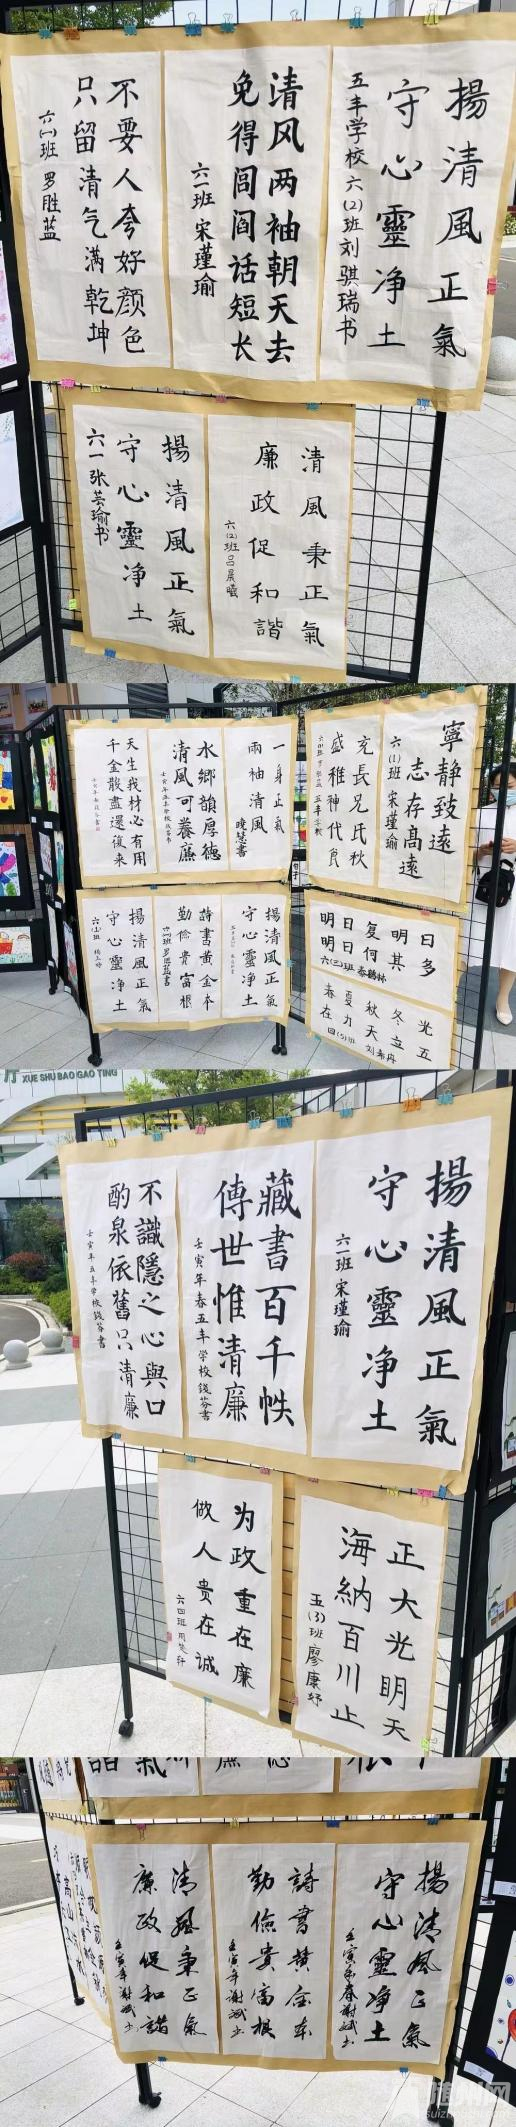 揚清風正氣
守心靈净土
五丰学校六(2)班刘骐瑞书
清风两袖朝天去
免得闾阎话短长
六一班 宋瑾瑜
不要人夸好颜色
只留清气满乾坤
六(一)班 罗胜蓝
清風秉正氣
廉政促和諧
六(2)班吕晨曦
揚清風正氣
守心靈净土
六一张芸瑜书
寧静致遠
志存高遠
六(1)班 宋瑾瑜
充長兄氏秋
盛稚神代良
一身正氣
兩袖清風
曉慧書
水鄉韻厚德
清風可養廉
天生我材必有用
千金散盡還復来
明日复明日
明日何其多
春夏秋冬光
在力天立五
揚清風正氣
守心靈净土
詩書黄金本
勤儉貴富根
揚清風正氣
守心靈净土
XUE SHU BAO GAO TING
揚清風正氣
守心靈净土
六一班 宋瑾瑜
藏書百千帙
傳世惟清廉
壬寅年春五丰学校钱芬書
不識隱之心與口
酌泉依舊只清廉
壬寅年五丰学校钱芬書
正大光明天
海納百川止
五(3)班廖康妤
为政重在廉
做人贵在诚
揚清風正氣
守心靈净土
壬寅年春謝斌书
詩書黄金本
勤儉貴富根
壬寅年謝斌书
清風秉正氣
廉政促和諧
壬寅年謝斌书
随州网